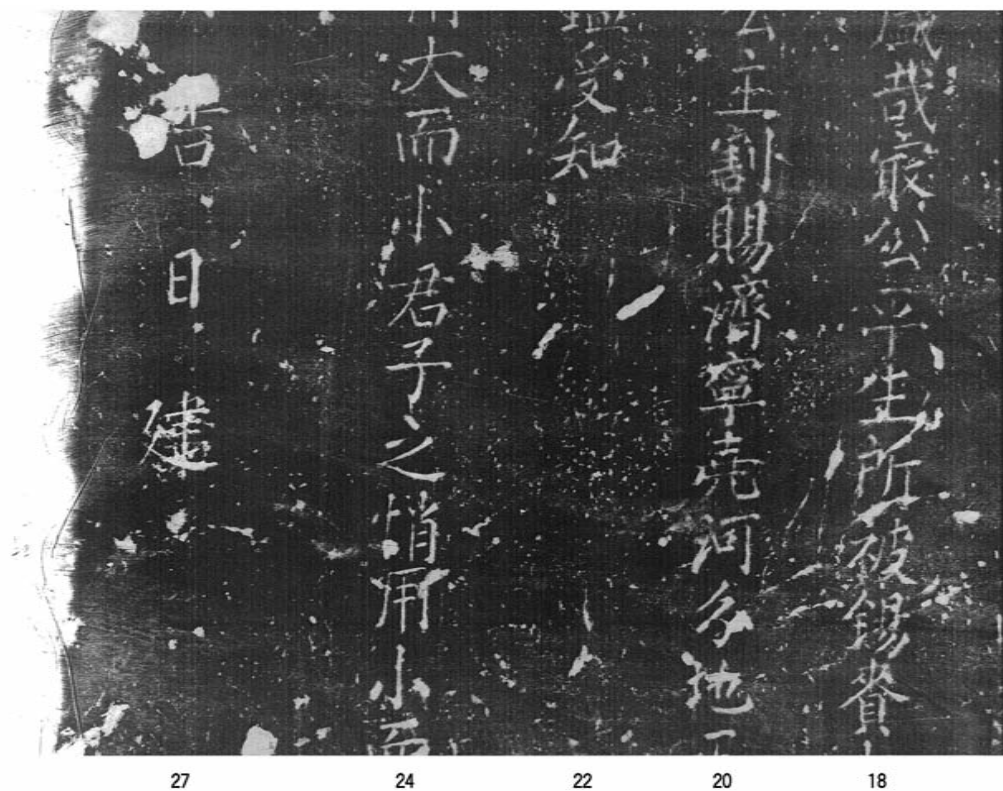 盛哉最公平生所被錫賚
公主割賜濟寧兖河多地
受知
大而小君子之悄用小而
吉日建
27 24 22 20 18